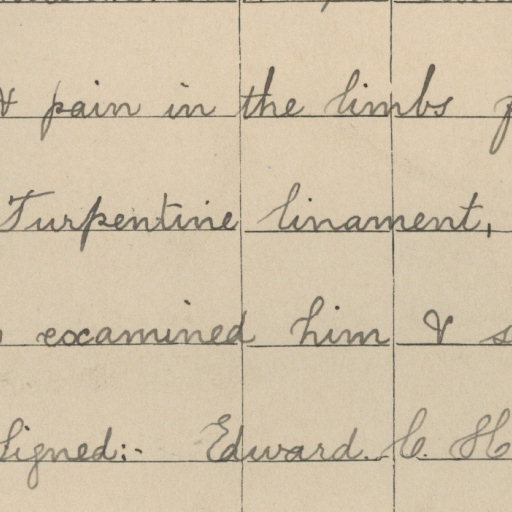 & pain in the limbs
Turpentine linament,
examined him &
Signed:- Edward. C. H